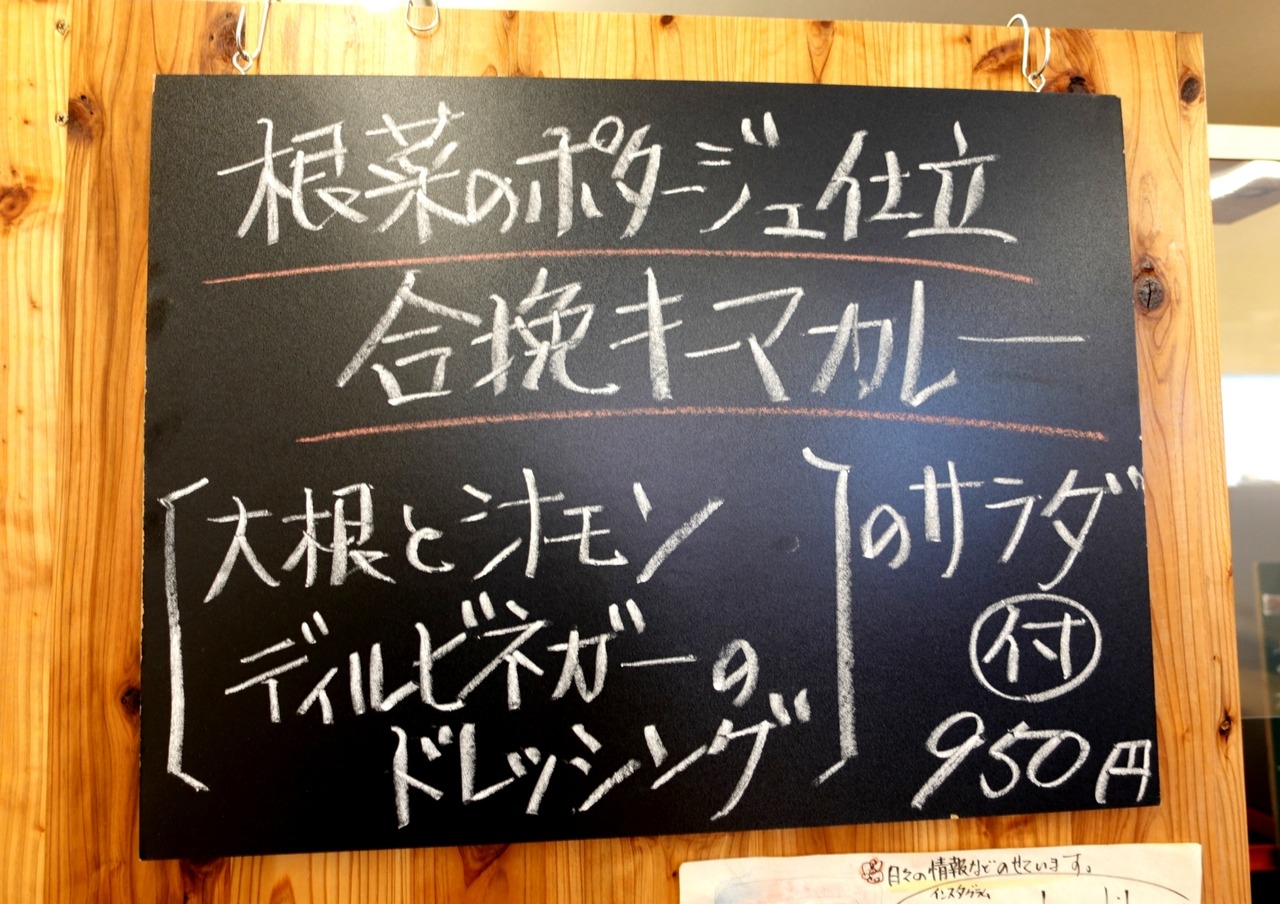 根菜のポタージュ仕立
合挽キーマカレー
大根とシナモン
ディルビネガーの
ドレッシング
のサラダ
付
950円
日々の情報などのせています。
インスタグラム